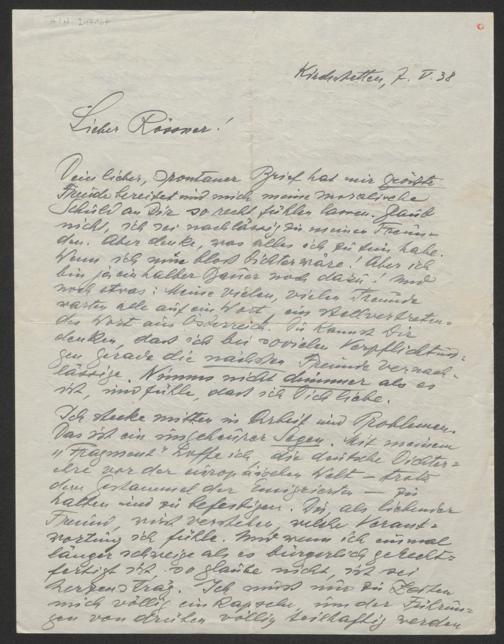 Kirchstetten, 7. V. 38
Lieber Rössner!
Dein lieber, spontaner Brief hat mir größte
Freude bereitet und mich meine moralische
Schuld an Dir so recht fühlen lassen. Glaub
nicht, ich sei nachlässig zu meinen Freun-
den. Aber denke, was alles ich zu tun habe.
Wenn ich nur bloß Dichter wäre! Aber ich
bin ja ein halber Bauer noch dazu! Und
noch etwas: Meine vielen, vielen Freunde
warten alle auf ein Wort, ein stellvertreten-
des Wort aus Österreich. Du kannst Dir
denken, daß ich bei sovielen Verpflichtun-
gen gerade die nächsten Freunde vernach-
lässige. Nimms nicht dümmer als es
ist, und fühle, daß ich Dich liebe.
Ich stecke mitten in Arbeit und Problemen.
Das ist ein ungeheurer Segen. Mit meinem
"Fragment" hoffe ich, die deutsche Dichter=
ehre vor der europäischen Welt – trotz
dem Gestammel der Emigrierten – zu
halten und zu befestigen. Du, als liebender
Freund, wirst verstehen, welche Verant=
wortung ich fühle. Und wenn ich einmal
länger schweige als es bürgerlich gerecht-
fertigt ist, so glaube nicht, ist sei
herzensträg. Ich muß nur zu Zeiten
mich völlig einkapseln, um der Führun-
gen von drüben völlig teilhaftig werden